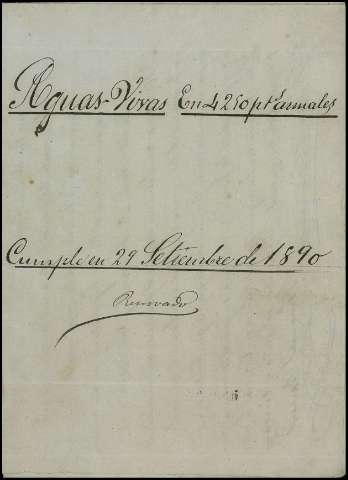 Aguas-Vivas En 4250 pts anuales
Cumple en 29 Setiembre de 1890
Renovado